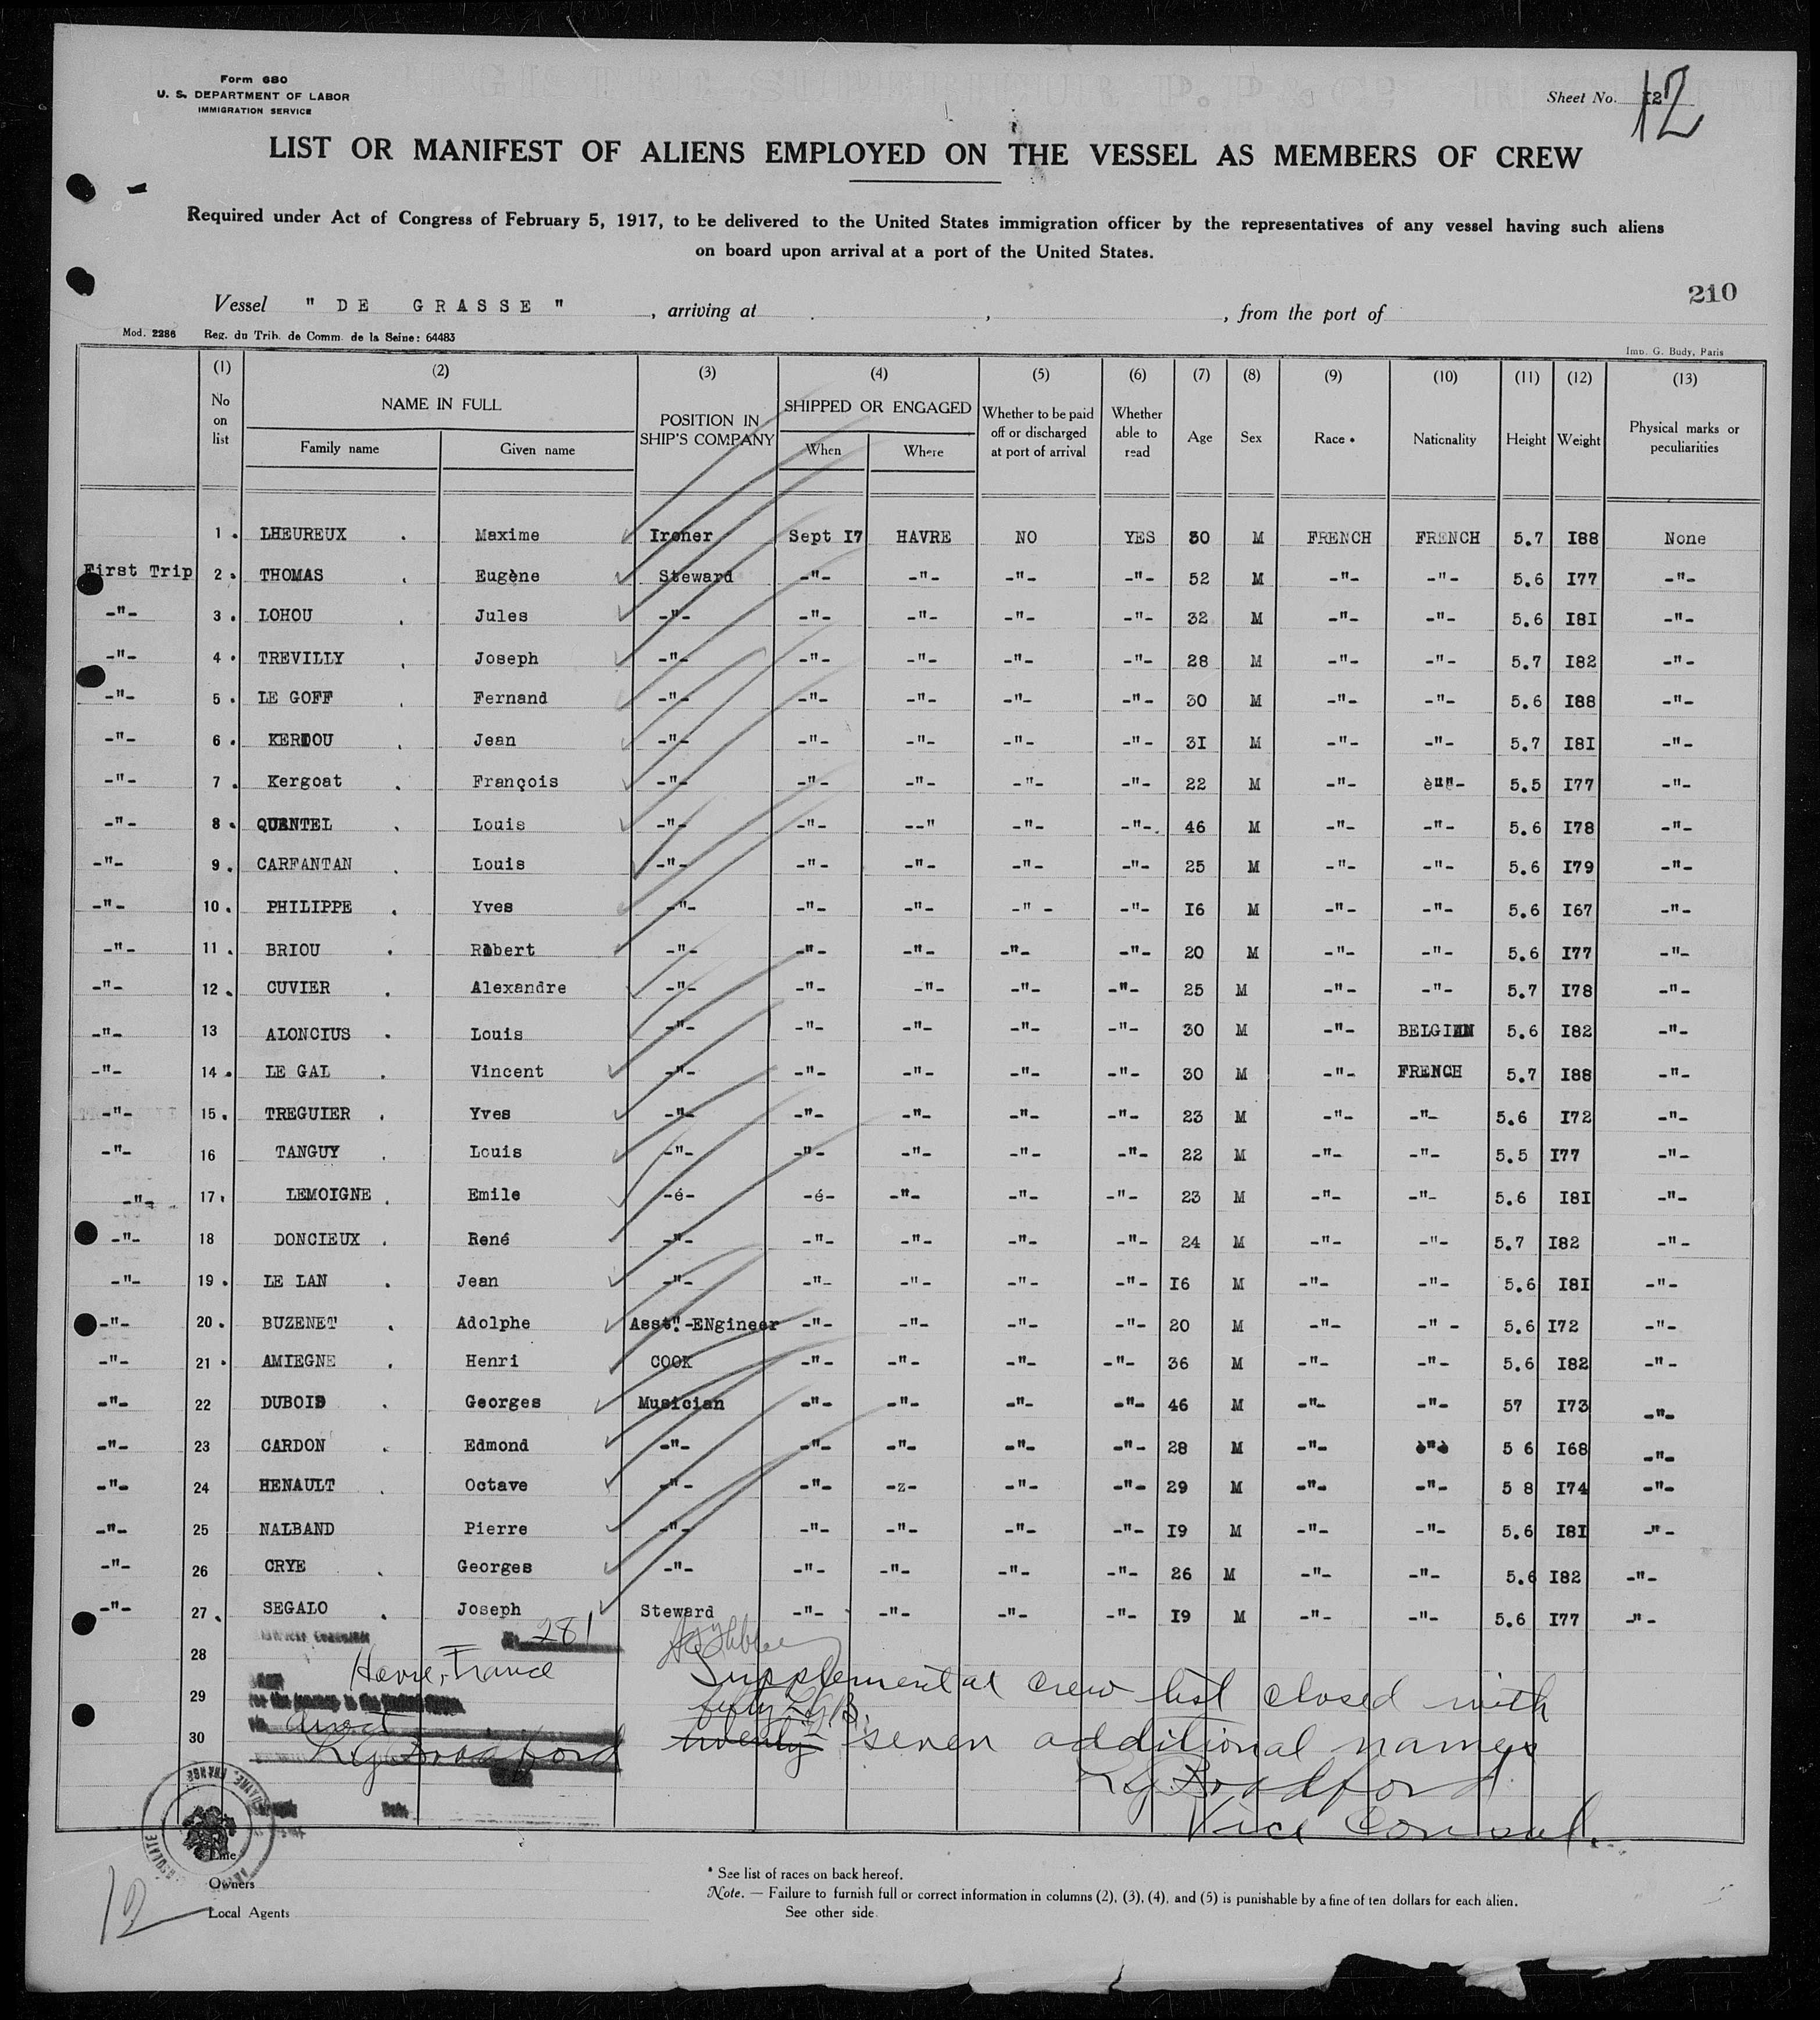 Form 680
U. S. DEPARTMENT OF LABOR
IMMIGRATION SERVICE
Sheet No. I2
12
LIST OR MANIFEST OF ALIENS EMPLOYED ON THE VESSEL AS MEMBERS OF CREW
Required under Act of Congress of February 5, 1917, to be delivered to the United States immigration officer by the representatives of any vessel having such aliens
on board upon arrival at a port of the United States.
210
Vessel " DE GRASSE " , arriving at , , from the port of
Mod. 2286 Reg. du Trib. de Comm. de la Seine: 64483
Imp. G. Budy, Paris
(1) (2) (3) (4) (5) (6) (7) (8) (9) (10) (11) (12) (13)
No on list NAME IN FULL Family name Given name POSITION IN SHIP'S COMPANY SHIPPED OR ENGAGED When Where Whether to be paid off or discharged at port of arrival Whether able to read Age Sex Race * Nationality Height Weight Physical marks or peculiarities
1 . LHEUREUX . Maxime Ironer Sept I7 HAVRE NO YES 30 M FRENCH FRENCH 5.7 I88 None
First Trip 2 . THOMAS . Eugène Steward -"- -"- -"- -"- 52 M -"- -"- 5.6 I77 -"-
-"- 3 . LOHOU . Jules -"- -"- -"- -"- -"- 32 M -"- -"- 5.6 I8I -"-
-"- 4 . TREVILLY . Joseph -"- -"- -"- -"- -"- 28 M -"- -"- 5.7 I82 -"-
-"- 5 . LE GOFF . Fernand -"- -"- -"- -"- -"- 30 M -"- -"- 5.6 I88 -"-
-"- 6 . KERDOU . Jean -"- -"- -"- -"- -"- 3I M -"- -"- 5.7 I8I -"-
-"- 7 . Kergoat . François -"- -"- -"- -"- -"- 22 M -"- -"- 5.5 I77 -"-
-"- 8 . QUENTEL . Louis -"- -"- --" -"- -"-. 46 M -"- -"- 5.6 I78 -"-
-"- 9 . CARFANTAN . Louis -"- -"- -"- -"- -"- 25 M -"- -"- 5.6 I79 -"-
-"- 10 . PHILIPPE . Yves -"- -"- -"- -" - -"- I6 M -"- -"- 5.6 I67 -"-
-"- 11 . BRIOU . Robert -"- -"- -"- -"- -"- 20 M -"- -"- 5.6 I77 -"-
-"- 12 . CUVIER . Alexandre -"- -"- -"- -"- -"- 25 M -"- -"- 5.7 I78 -"-
-"- 13 ALONCIUS . Louis -"- -"- -"- -"- -"- 30 M -"- BELGIAN 5.6 I82 -"-
-"- 14 . LE GAL . Vincent -"- -"- -"- -"- -"- 30 M -"- FRENCH 5.7 I88 -"-
-"- 15 . TREGUIER . Yves -"- -"- -"- -"- -"- 23 M -"- -"- 5.6 I72 -"-
-"- 16 TANGUY . Louis -"- -"- -"- -"- -"- 22 M -"- -"- 5.5 I77 -"-
-"- 17 . LEMOIGNE . Emile -é- -é- -"- -"- -"- 23 M -"- -"- 5.6 I8I -"-
-"- 18 DONCIEUX . René -"- -"- -"- -"- -"- 24 M -"- -"- 5.7 I82 -"-
-"- 19 . LE LAN . Jean -"- -"- -"- -"- -"- I6 M -"- -"- 5.6 I8I -"-
-"- 20 . BUZENET . Adolphe Asst".-ENgineer -"- -"- -"- -"- 20 M -"- -" - 5.6 I72 -"-
-"- 21 . AMIEGNE . Henri COOK -"- -"- -"- -"- 36 M -"- -"- 5.6 I82 -"-
-"- 22 DUBOIS . Georges Musician -"- -"- -"- -"- 46 M -"- -"- 57 I73 -"-
-"- 23 CARDON . Edmond -"- -"- -"- -"- -"- 28 M -"- -"- 5 6 I68 -"-
-"- 24 HENAULT . Octave -"- -"- -z- -"- -"- 29 M -"- -"- 5 8 I74 -"-
-"- 25 NALBAND Pierre -"- -"- -"- -"- -"- I9 M -"- -"- 5.6 I8I -"-
-"- 26 CRYE . Georges -"- -"- -"- -"- -"- 26 M -"- -"- 5.6 I82 -"-
-"- 27 . SEGALO . Joseph Steward -"- -"- -"- -"- I9 M -"- -"- 5.6 I77 -"-
281
28 Havre, France Supplemental crew list closed with
29 for the journey to the United States fifty LGB.
30 direct twenty seven additional names
LGBradford LGBradford
Date Vice Consul.
Line
Owners
Local Agents
12
* See list of races on back hereof.
Note. — Failure to furnish full or correct information in columns (2), (3), (4), and (5) is punishable by a fine of ten dollars for each alien.
See other side